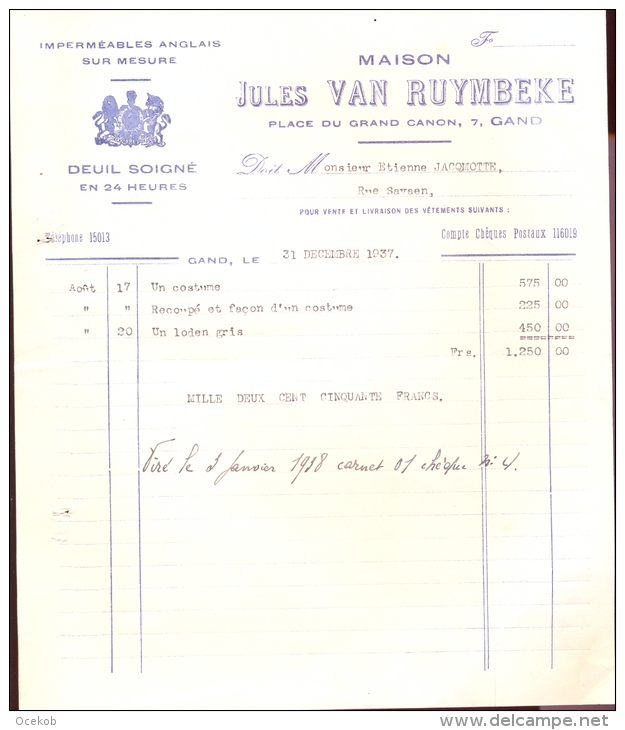 IMPERMÉABLES ANGLAIS
SUR MESURE
DEUIL SOIGNÉ
EN 24 HEURES
Fo
MAISON
JULES VAN RUYMBEKE
PLACE DU GRAND CANON, 7, GAND
Doit Monsieur Etienne JACQMOTTE,
Rue Savaen,
POUR VENTE ET LIVRAISON DES VÊTEMENTS SUIVANTS :
Téléphone 15013
Compte Chèques Postaux 116019
GAND, LE 31 DECEMBRE 1937.
Août 17 Un costume 575 00
" " Recoupé et façon d'un costume 225 00
" 20 Un loden gris 450 00
Frs. 1.250 00
MILLE DEUX CENT CINQUANTE FRANCS.
Viré le 3 Janvier 1938 carnet 01 chèque N° 4.
Ocekob
www.delcampe.net